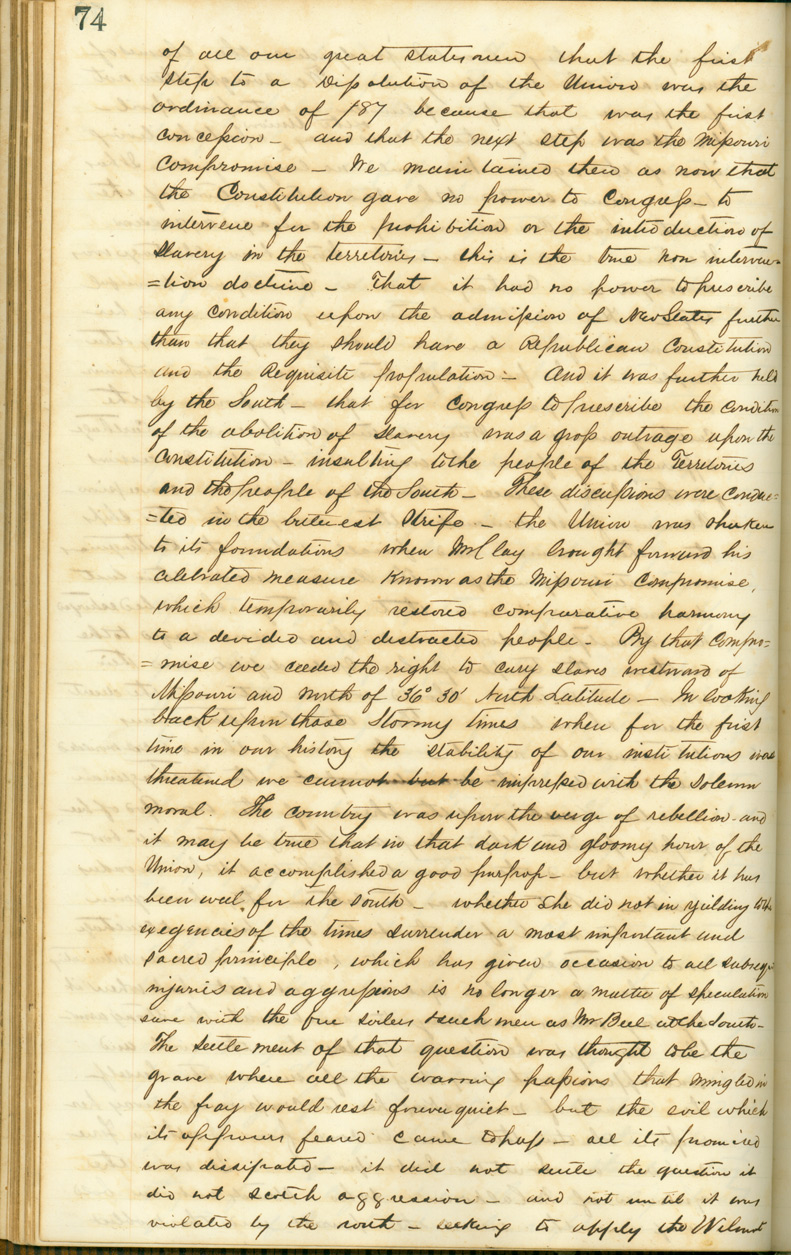 74
of all our great statesmen that the first
step to a Dissolution of the Union was the
ordinance of /87 because that was the first
concession - and that the next step was the Missouri
Compromise - We maintained then as now that
the Constitution gave no power to Congress - to
intervene for the prohibition or the introduction of
Slavery in the territories - this is the true non interven=
=tion doctrine - That it had no power to prescribe
any condition upon the admission of New States further
than that they should have a Republican Constitution
and the Requisite population - And it was further held
by the South - that for Congress to prescribe the condition
of the abolition of slavery was a gross outrage upon the
Constitution - insulting to the people of the Territories
and the people of the South - These discussions were conduc=
=ted in the bitterest Strife - the Union was shaken
to its foundations when Mr Clay brought forward his
celebrated measure Known as the Missouri Compromise,
which temporarily restored comparative harmony
to a devided and distracted people - By that Compro=
=mise we ceeded the right to carry slaves westward of
Missouri and north of 36° 30' North Latitude - In looking
back upon those Stormy times when for the first
time in our history the stability of our institutions was
threatened we cannot but be impressed with the solemn
moral. The country was upon the verge of rebellion - and
it may be true that in that dark and gloomy hour of the
Union, it accomplished a good purpose - but whether it has
been well for the South - whether she did not in yeilding to the
exegencies of the times surrender a most important and
sacred principle, which has given occasion to all subsequ
injuries and aggressions is no longer a matter of speculation
save with the free soilers & such men as Mr Bell at the South -
The settlement of that question was thought to be the
grave where all the warring passions that mingled in
the fray would rest forever quiet - but the evil which
its opposers feared came to pass - all its promised
was dissipated - it did not settle the question it
did not scotch aggression - and not until it was
violated by the north - seeking to apply the Wilmot